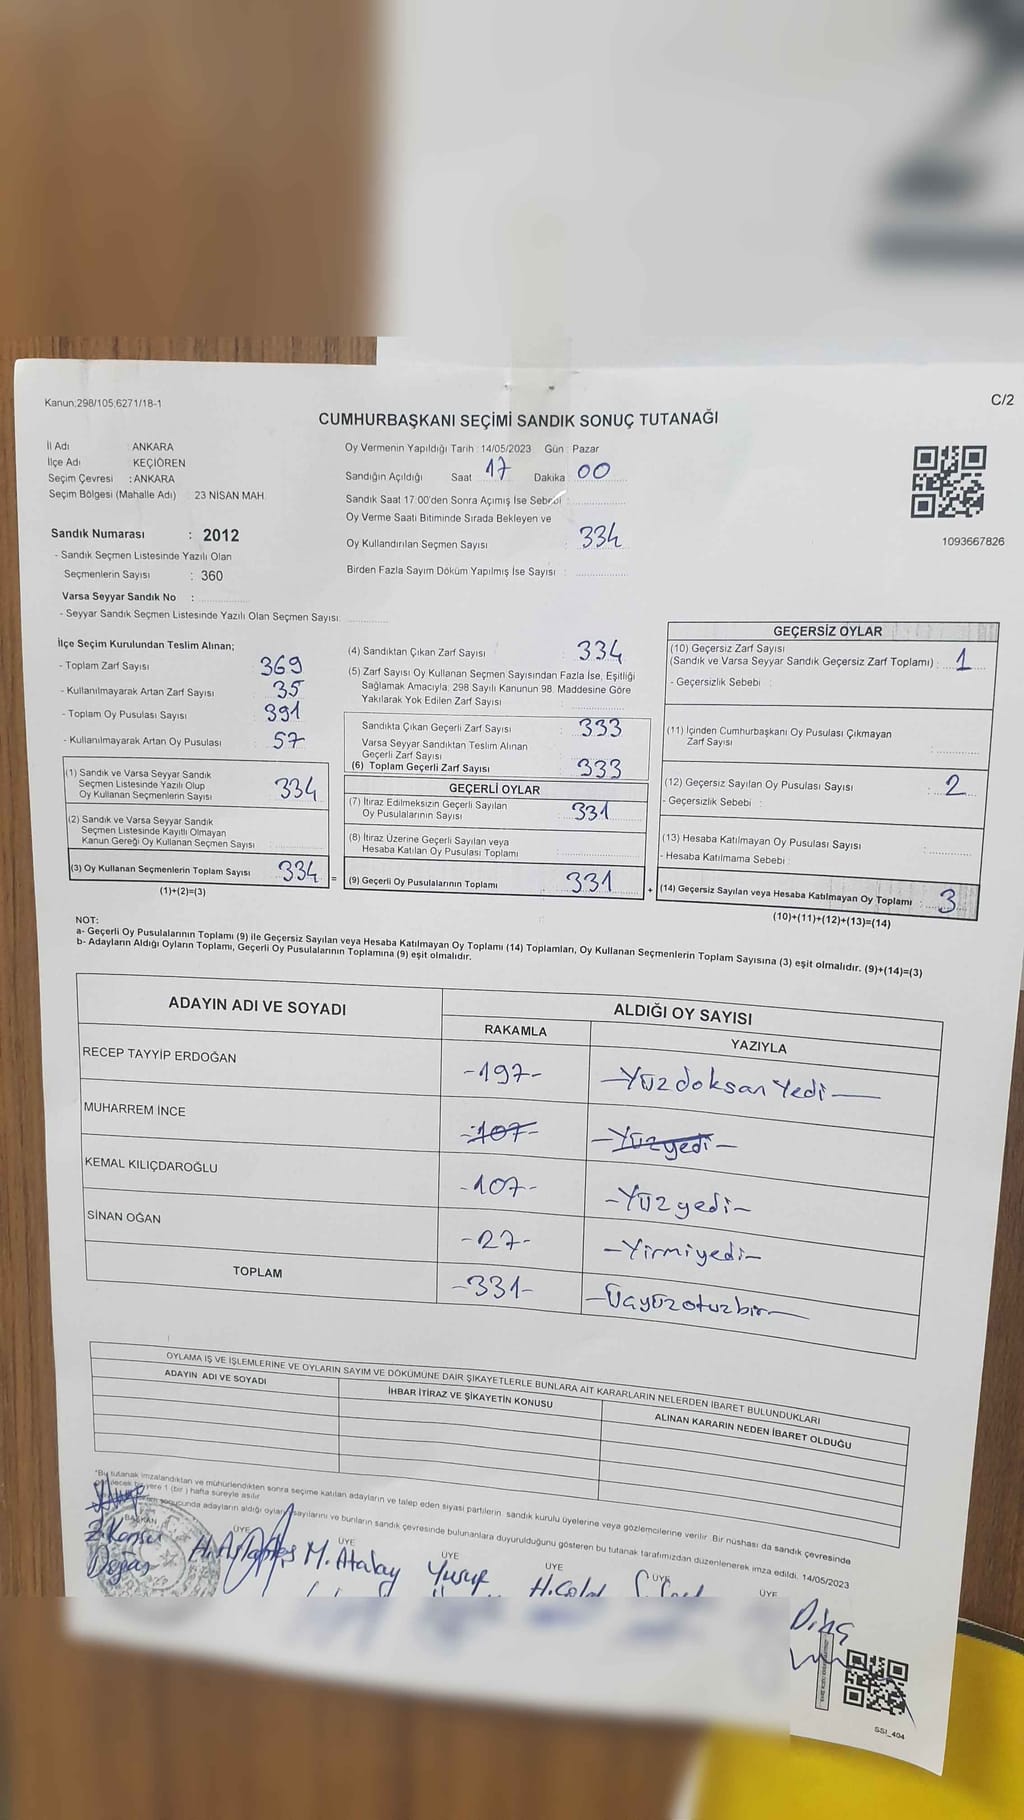 Kanun;298/105;6271/18-1
C/2
CUMHURBAŞKANI SEÇİMİ SANDIK SONUÇ TUTANAĞI
İl Adı ANKARA
İlçe Adı KEÇİÖREN
Seçim Çevresi : ANKARA
Seçim Bölgesi (Mahalle Adı) 23 NİSAN MAH.
Oy Vermenin Yapıldığı Tarih : 14/05/2023 Gün : Pazar
Sandığın Açıldığı Saat 17 Dakika 00
Sandık Saat 17:00'den Sonra Açımış İse Sebebi :
Oy Verme Saati Bitiminde Sırada Bekleyen ve
Oy Kullandırılan Seçmen Sayısı : 334
Birden Fazla Sayım Döküm Yapılmış İse Sayısı :
1093667826
Sandık Numarası : 2012
- Sandık Seçmen Listesinde Yazılı Olan
Seçmenlerin Sayısı : 360
Varsa Seyyar Sandık No :
- Seyyar Sandık Seçmen Listesinde Yazılı Olan Seçmen Sayısı:
İlçe Seçim Kurulundan Teslim Alınan;
- Toplam Zarf Sayısı 369
- Kullanılmayarak Artan Zarf Sayısı 35
- Toplam Oy Pusulası Sayısı 391
- Kullanılmayarak Artan Oy Pusulası 57
(1) Sandık ve Varsa Seyyar Sandık
Seçmen Listesinde Yazılı Olup
Oy Kullanan Seçmenlerin Sayısı : 334
(2) Sandık ve Varsa Seyyar Sandık
Seçmen Listesinde Kayıtlı Olmayan
Kanun Gereği Oy Kullanan Seçmen Sayısı :
(3) Oy Kullanan Seçmenlerin Toplam Sayısı 334 =
(1)+(2)=(3)
(4) Sandıktan Çıkan Zarf Sayısı : 334
(5) Zarf Sayısı Oy Kullanan Seçmen Sayısından Fazla İse, Eşitliği
Sağlamak Amacıyla; 298 Sayılı Kanunun 98. Maddesine Göre
Yakılarak Yok Edilen Zarf Sayısı :
Sandıkta Çıkan Geçerli Zarf Sayısı : 333
Varsa Seyyar Sandıktan Teslim Alınan
Geçerli Zarf Sayısı :
(6) Toplam Geçerli Zarf Sayısı : 333
GEÇERLİ OYLAR
(7) İtiraz Edilmeksizin Geçerli Sayılan
Oy Pusulalarının Sayısı : 331
(8) İtiraz Üzerine Geçerli Sayılan veya
Hesaba Katılan Oy Pusulası Toplamı :
(9) Geçerli Oy Pusulalarının Toplamı : 331 +
GEÇERSİZ OYLAR
(10) Geçersiz Zarf Sayısı
(Sandık ve Varsa Seyyar Sandık Geçersiz Zarf Toplamı) : 1
- Geçersizlik Sebebi :
(11) İçinden Cumhurbaşkanı Oy Pusulası Çıkmayan
Zarf Sayısı :
(12) Geçersiz Sayılan Oy Pusulası Sayısı : 2
- Geçersizlik Sebebi :
(13) Hesaba Katılmayan Oy Pusulası Sayısı :
- Hesaba Katılmama Sebebi :
(14) Geçersiz Sayılan veya Hesaba Katılmayan Oy Toplamı : 3
(10)+(11)+(12)+(13)=(14)
NOT:
a- Geçerli Oy Pusulalarının Toplamı (9) ile Geçersiz Sayılan veya Hesaba Katılmayan Oy Toplamı (14) Toplamları, Oy Kullanan Seçmenlerin Toplam Sayısına (3) eşit olmalıdır. (9)+(14)=(3)
b- Adayların Aldığı Oyların Toplamı, Geçerli Oy Pusulalarının Toplamına (9) eşit olmalıdır.
ADAYIN ADI VE SOYADI
ALDIĞI OY SAYISI
RAKAMLA YAZIYLA
RECEP TAYYİP ERDOĞAN -197- -Yüzdoksan Yedi-
MUHARREM İNCE -107- -Yüzyedi-
KEMAL KILIÇDAROĞLU -107- -Yüzyedi-
SİNAN OĞAN -27- -Yirmiyedi-
TOPLAM -331- -Üçyüzotuzbir-
OYLAMA İŞ VE İŞLEMLERİNE VE OYLARIN SAYIM VE DÖKÜMÜNE DAİR ŞİKAYETLERLE BUNLARA AİT KARARLARIN NELERDEN İBARET BULUNDUKLARI
ADAYIN ADI VE SOYADI İHBAR İTİRAZ VE ŞİKAYETİN KONUSU ALINAN KARARIN NEDEN İBARET OLDUĞU
*Bu tutanak imzalandıktan ve mühürlendikten sonra seçime katılan adayların ve talep eden siyasi partilerin sandık kurulu üyelerine veya gözlemcilerine verilir. Bir nüshası da sandık çevresinde
yere 1 (bir) hafta süreyle asılır.
sonucunda adayların aldığı oyların sayılarını ve bunların sandık çevresinde bulunanlara duyurulduğunu gösteren bu tutanak tarafımızdan düzenlenerek imza edildi. 14/05/2023
BAŞKAN ÜYE ÜYE ÜYE ÜYE ÜYE ÜYE
Doğas M. Atalay Yusuf
SSI_404